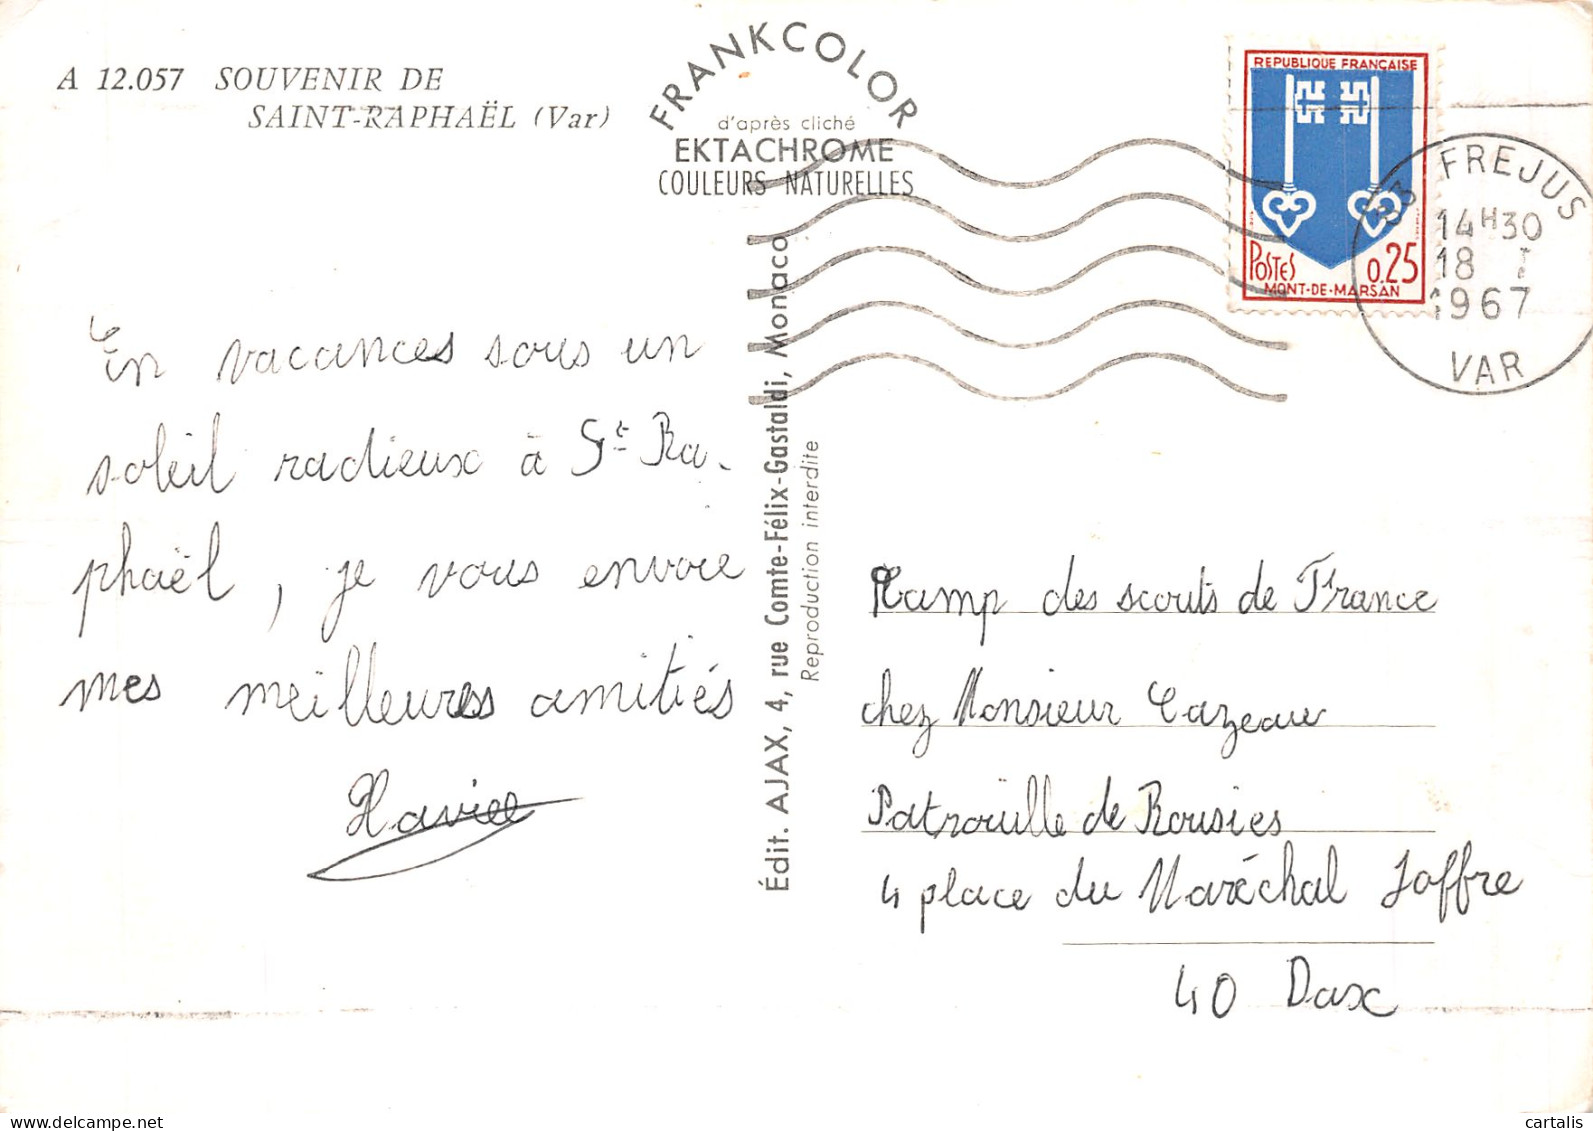 A 12.057 SOUVENIR DE
SAINT-RAPHAËL (Var)
FRANKCOLOR
d'après cliché
EKTACHROME
COULEURS NATURELLES
REPUBLIQUE FRANÇAISE
POSTES 0.25
MONT-DE-MARSAN
83 FREJUS
14H30
18
1967
VAR
En vacances sous un
soleil radieux à St Ra-
phaël, je vous envoie
mes meilleures amitiés
Xavier
Édit. AJAX, 4, rue Comte-Félix-Gastaldi, Monaco
Reproduction interdite
Camp des scouts de France
chez Monsieur Cazeaux
Patrouille de
4 place du Maréchal Joffre
40 Dax
cartalis
www.delcampe.net